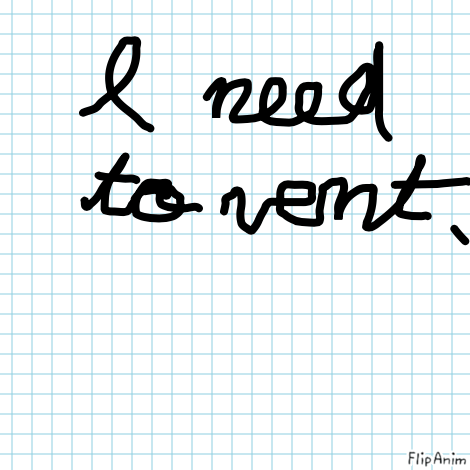 I need
to vent.
FlipAnim